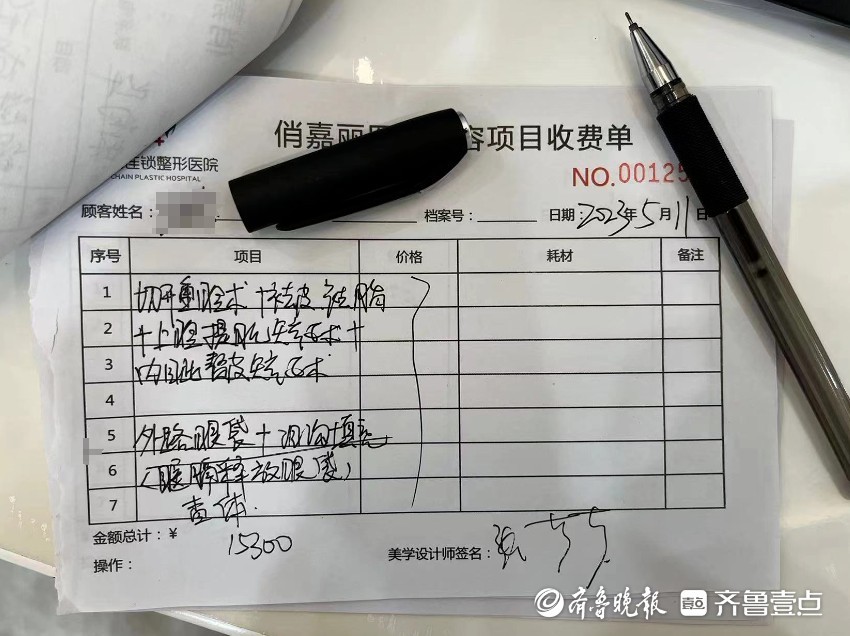 俏嘉丽 容项目收费单
连锁整形医院
CHAIN PLASTIC HOSPITAL
NO.00125
顾客姓名： 档案号： 日期：2023年5月11日
序号 项目 价格 耗材 备注
1 切开重睑术+去皮去脂
2 +上睑提肌矫正术+
3 内眦赘皮矫正术
4
5 外路眼袋+泪沟填充
6 (眶膈释放眼袋)
7 查体.
金额总计：¥ 15300
操作： 美学设计师签名：
齐鲁晚报 壹点 齐鲁壹点